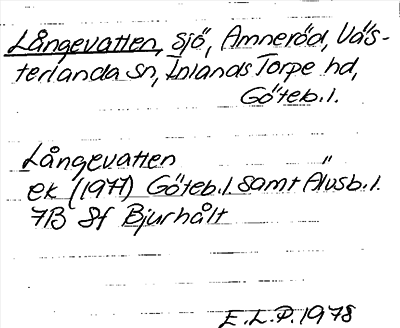 Långevatten, sjö, Amneröd, Väs-
terlanda sn, Inlands Torpe hd,
Göteb. l.
Långevatten
ek (1977) Göteb. l. samt Älvsb. l.
7B 8f Bjurhålt
E.L.P. 1978